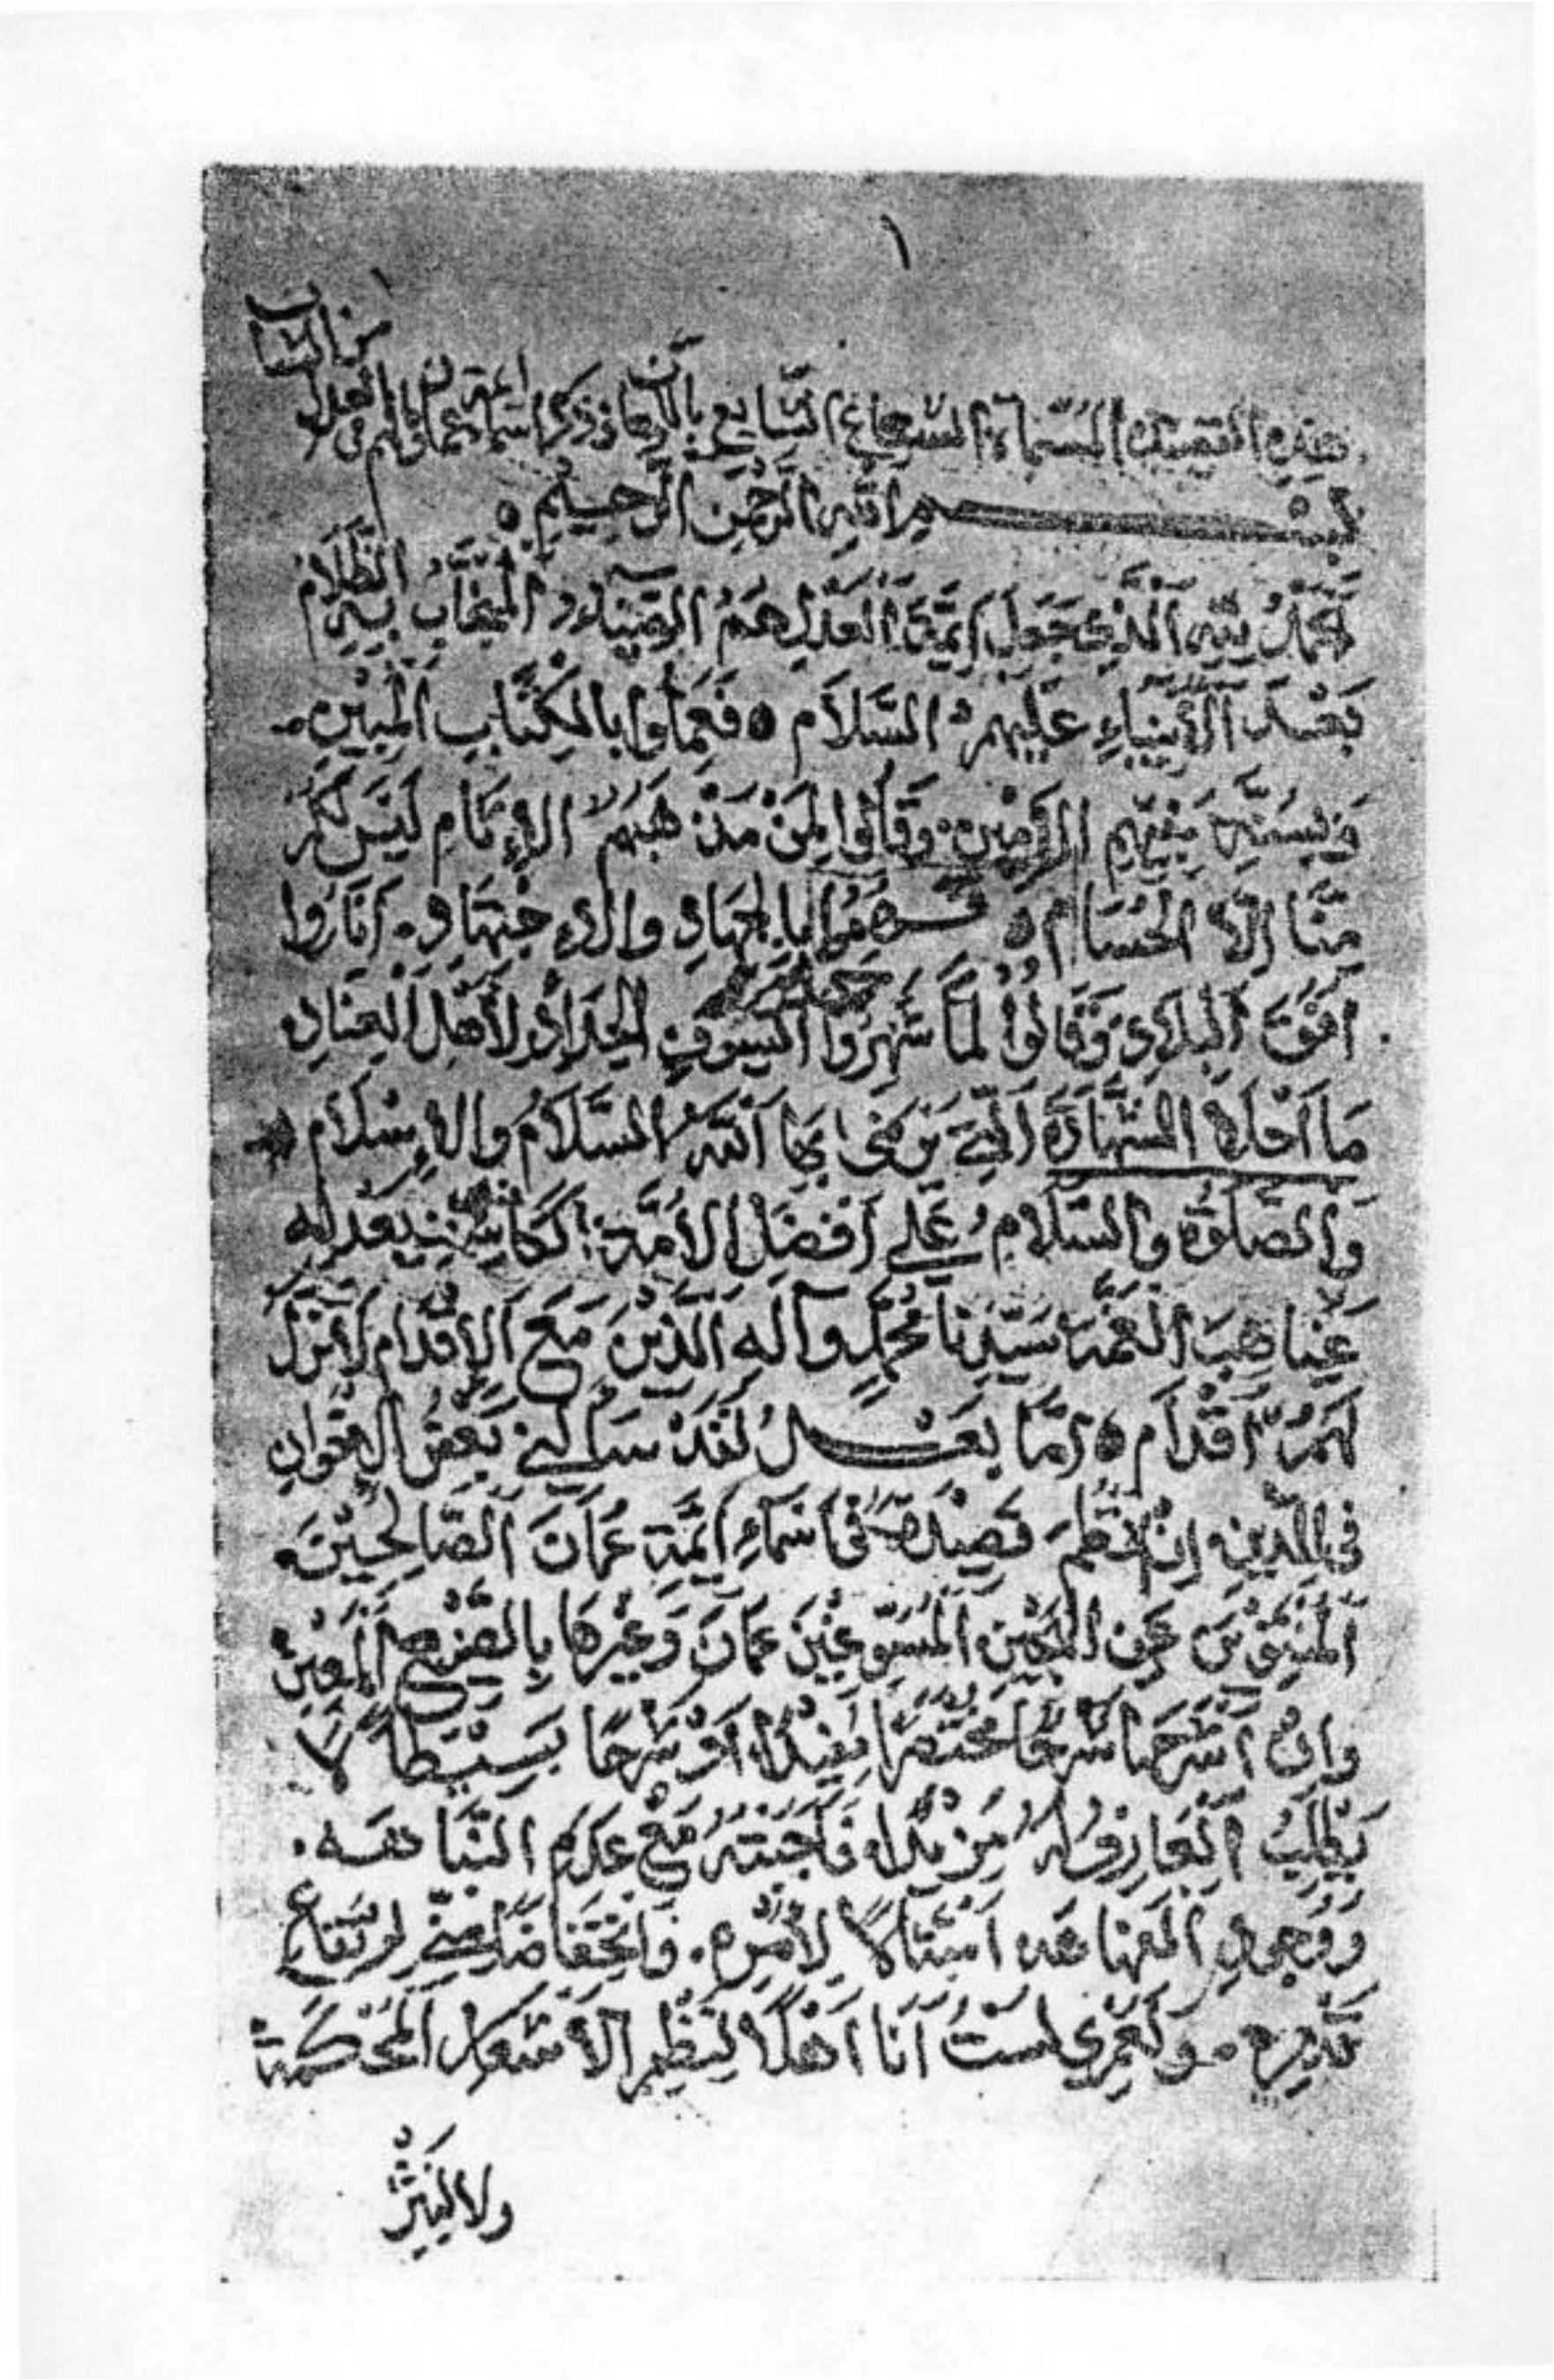 ١
هذه القصيدة المسماة الشعاع الشايع باللمعان في ذكر اسماء ائمة عمان وما لهم في العدل
من الشان
بسم الله الرحمن الرحيم
اَلحمدُ لِلّهِ الَّذِي جَعَلَ اَئِمَّةَ العَدْلِ هُمُ الضِّيَاءُ المنجاب بِهِ الظَّلَامُ
بَعْدَ الأَنْبِيَاءِ عَلَيْهِمُ السَّلَامُ ه فَعَمِلُوا بِالْكِتَابِ المُبِينِ
وَبِسُنَّةِ نَبِيِّهِمِ الأَمِينِ. وَقَالُوا لِمَنْ مَذْهَبُهُمُ الاِءثامِ لَيْسَ لَكُمْ
مِنَّا إِلّا الحُسَامُ ه فَهُمُ بِالجِهَادِ وَالاِءجْتِهَادِ. اَنَارُوا
اُفُقَ البِلَادِ وَقَالُوا لَمَّا شَهَرُوا السُّيُوفَ الحِدَادَ لأَهْلِ العِنَادِ
مَا اَحْلَا الشَّهَادَةَ الَّتِي يَرْضَى بِهَا اَللهُ السَّلَامُ وَالاِءسْلَامُ
وَالصَّلوةُ وَالسَّلَامُ عَلَى اَفْضَلِ الأُمَّةِ الكَاشِفِ بِعَدْلِهِ
غَيَاهِبَ الغُمَّةِ سَيِّدِنَا مُحَمَّدٍ وَآلِهِ الَّذِينَ مَعَ الاِقْدَامِ لَا تَزِلُّ
لَهُمُ اَقْدَام ه اَمَّا بَعْدُ لَقَدْ سَأَلَنِي بَعْضُ الاِخْوَانِ
فِي الدِّينِ اِنْ اَنْظِمَ قَصِيدَةً فِي اَسْمَاءِ اَئِمَّةِ عُمَانَ الصَّالِحِينَ
المُنَزَّهِينَ عَنِ المَيْنِ المُسَوِّغِينَ عُمَانَ وَغَيْرَهَا بِالصُّنْعِ المعين
وَاِنْ اَشْرَحَهَا شَرْحًا مُخْتَصَرًا مُفِيدًا اَوْ شَرْحًا بَسِيْطاً لَا
يَطْلُبُ العَارِفُ لَهُ مَزِيْدًا فَاَجَبْتُهُ مَعَ عَدَمِ النَّبَاهَه.
وَوُجُودِ الفَهَاهَه اَمْتِثَالًا لِأَمْرِهِ. وَانْخِفَاضًا مِنِّي لِارْتِفَاعِ
قَدْرِهِ. وَلَعَمْرِي لَسْتُ اَنَا اَهْلًا لِنَظْمِ الأَشْعَارِ المُحْكَمَةِ
ولا لِنَثْرِ